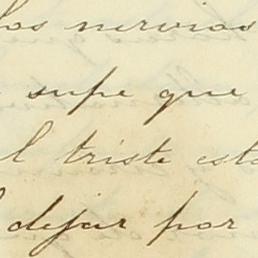 los nervios
supe que
el triste esta
dejar por